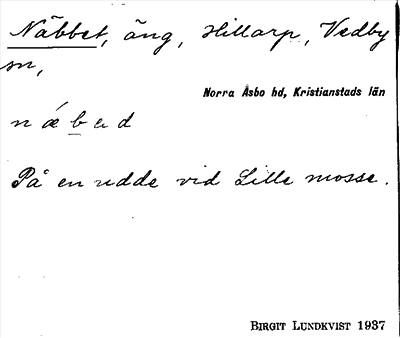 Näbbet, äng, Hillarp, Vedby
sn,
Norra Åsbo hd, Kristianstads län
nǽbəd
På en udde vid Lille mosse.
BIRGIT LUNDKVIST 1937